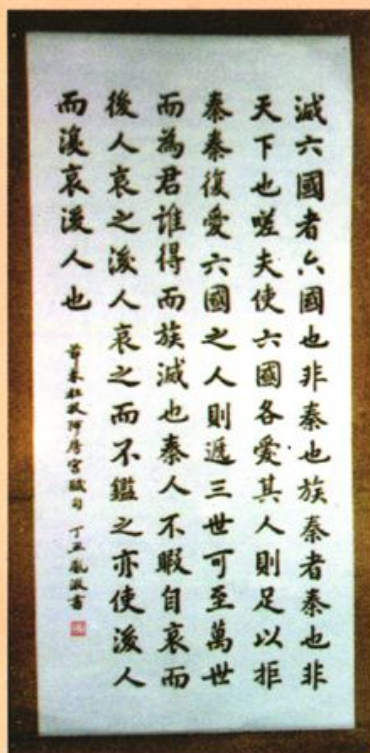 滅六國者六國也非秦也族秦者秦也非
天下也嗟夫使六國各愛其人則足以拒
秦秦復愛六國之人則遞三世可至萬世
而為君誰得而族滅也秦人不暇自哀而
後人哀之後人哀之而不鑑之亦使後人
而復哀後人也
節录杜牧阿房宮賦句 書